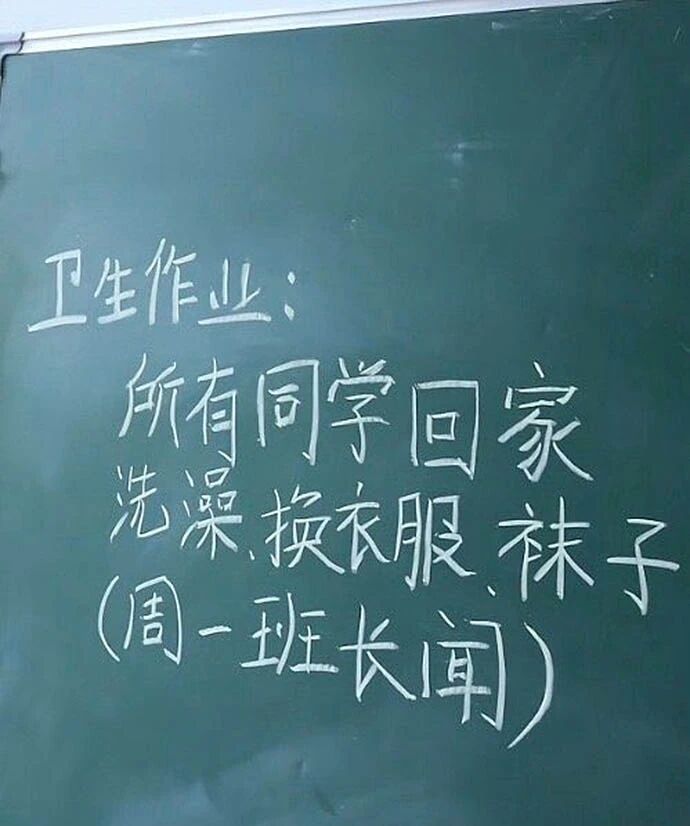 卫生作业：
所有同学回家
洗澡、换衣服、袜子
（周一班长闻）